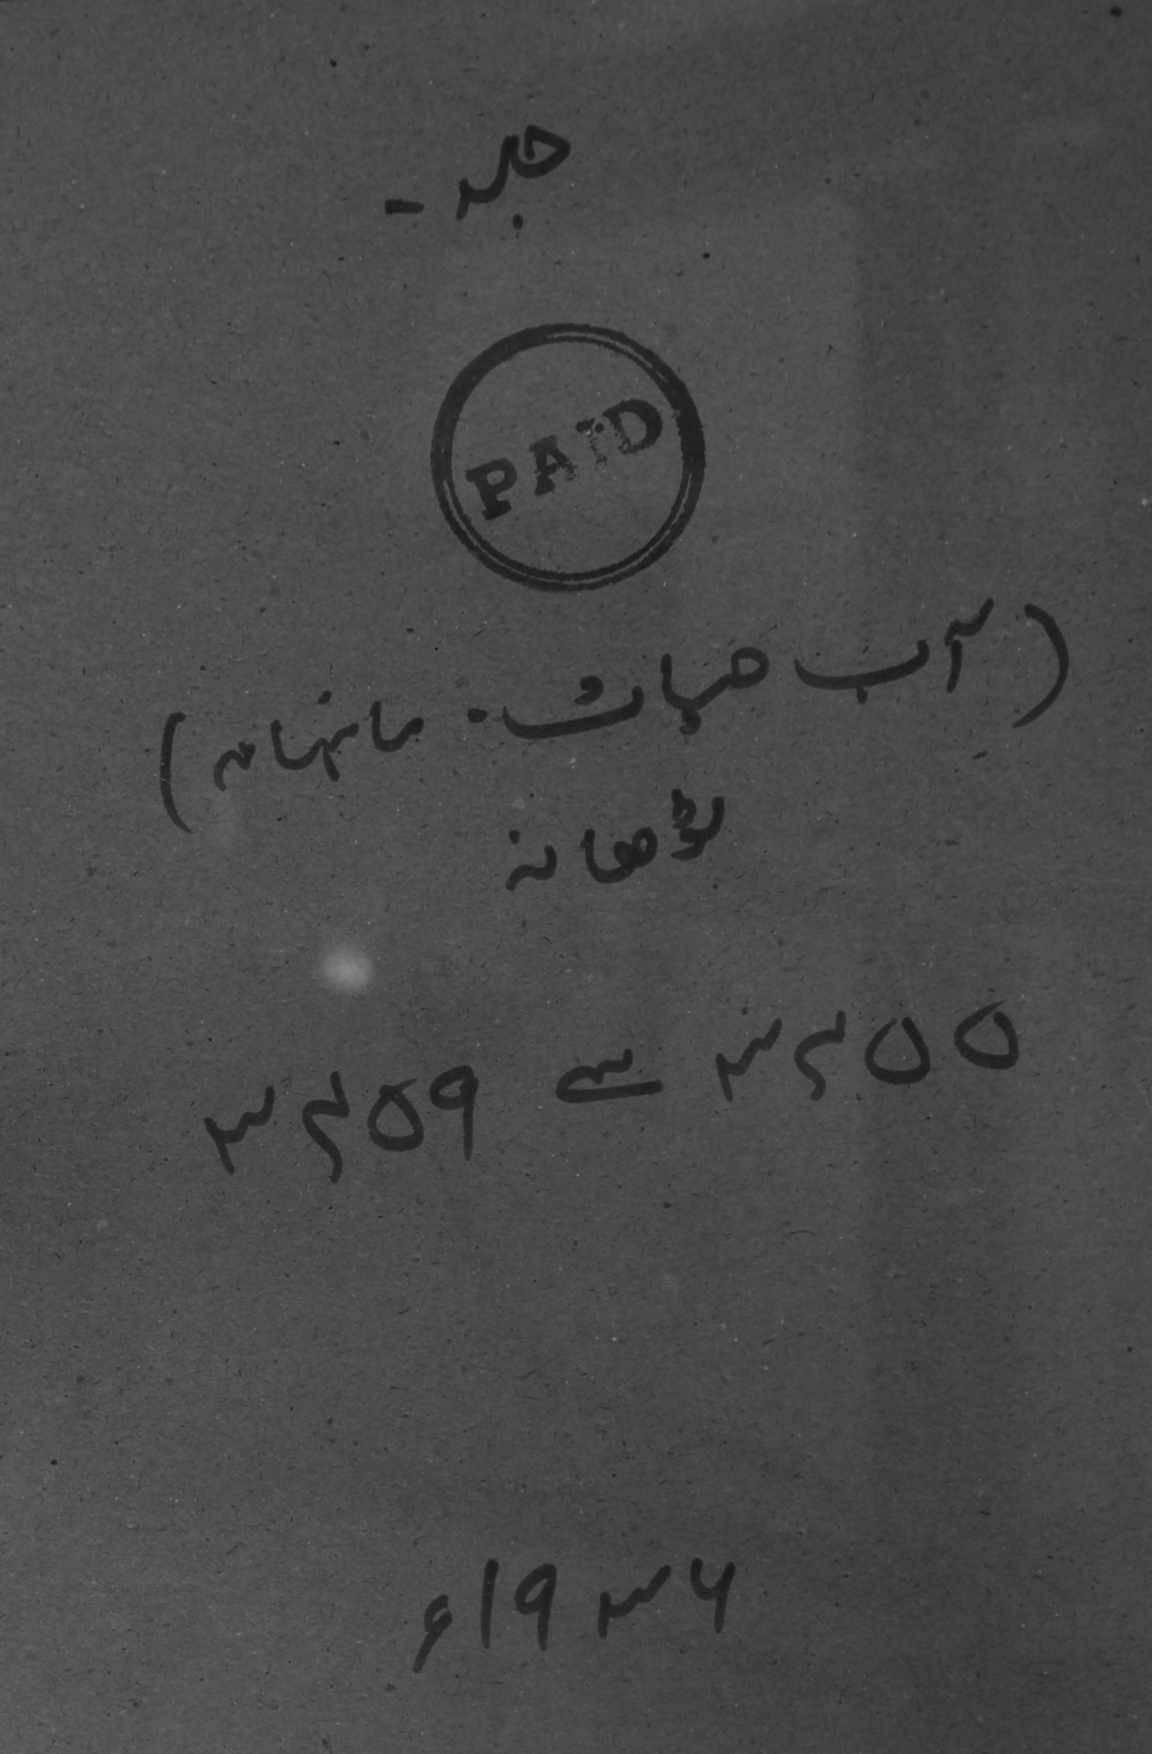 جلد -
PAID
(آب حیات. ماہنامہ)
لدھیانہ
۳۴۵۵ سے ۳۴۵۹
۱۹۳۶ء